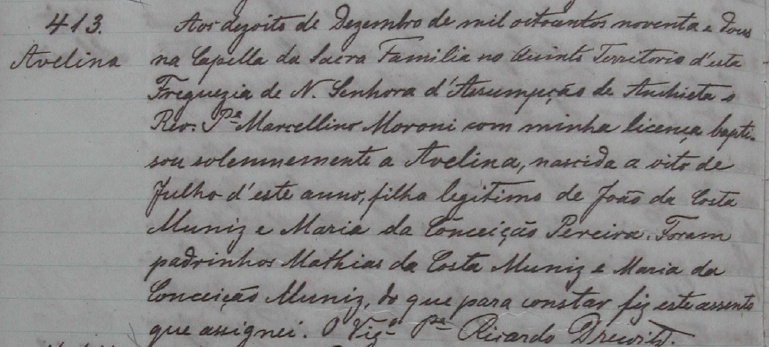 413.
Avelina
Aos dezoito de Dezembro de mil oitocentos noventa e dous
na Capella da Sacra Familia no Quinto Territorio d'esta
Freguezia de N. Senhora d'Assumpção de Anchieta o
Rev. Pe Marcellino Moroni com minha licença bapti-
sou solemnemente a Avelina, nascida a oito de
Julho d'este anno, filha legitima de João da Costa
Muniz e Maria da Conceição Pereira. Foram
padrinhos Mathias da Costa Muniz e Maria da
Conceição Muniz, do que para constar fiz este assento
que assignei. O Vigº Pe Ricardo Drewitz.